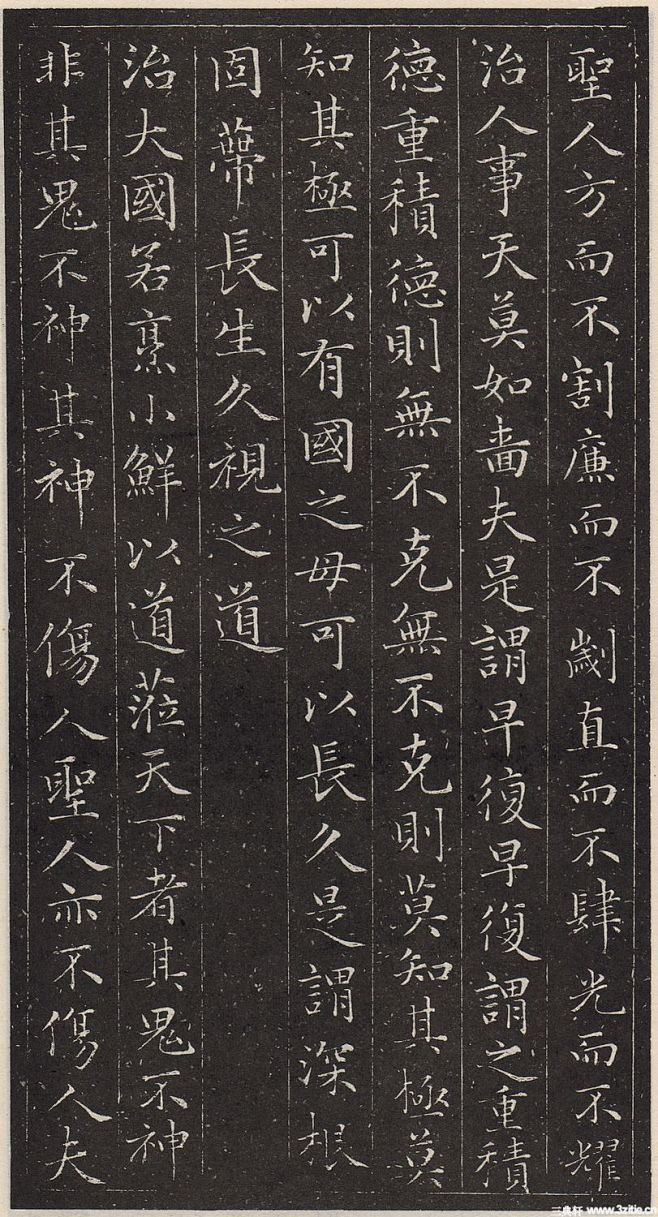 聖人方而不割廉而不劌直而不肆光而不耀
治人事天莫如嗇夫是謂早復早復謂之重積
德重積德則無不克無不克則莫知其極莫
知其極可以有國之母可以長久是謂深根
固蔕長生久視之道
治大國若烹小鮮以道蒞天下者其鬼不神
非其鬼不神其神不傷人聖人亦不傷人夫
三典軒 www.3zitie.cn